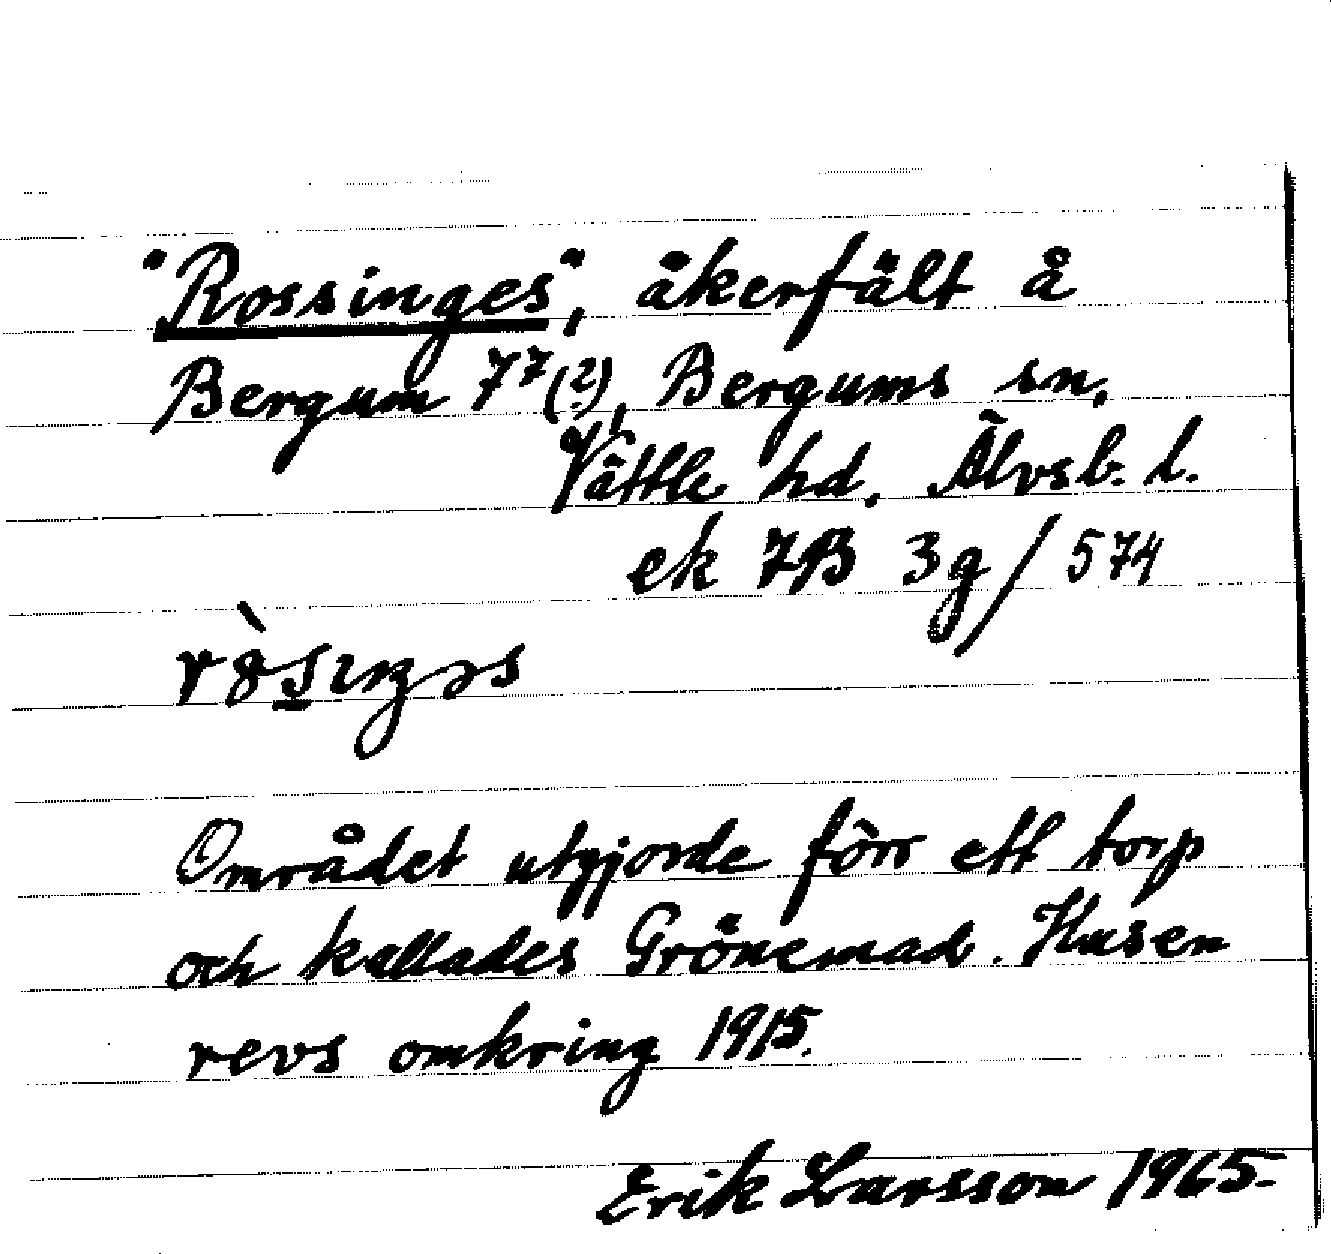 "Rossinges", åkerfält å
Bergum 7⁷(?), Bergums sn,
Vättle hd, Älvsb. l.
ek 7B 3g/574
Området utgjorde förr ett torp
och kallades Grönemad. Husen
revs omkring 1915.
Erik Larsson 1965-